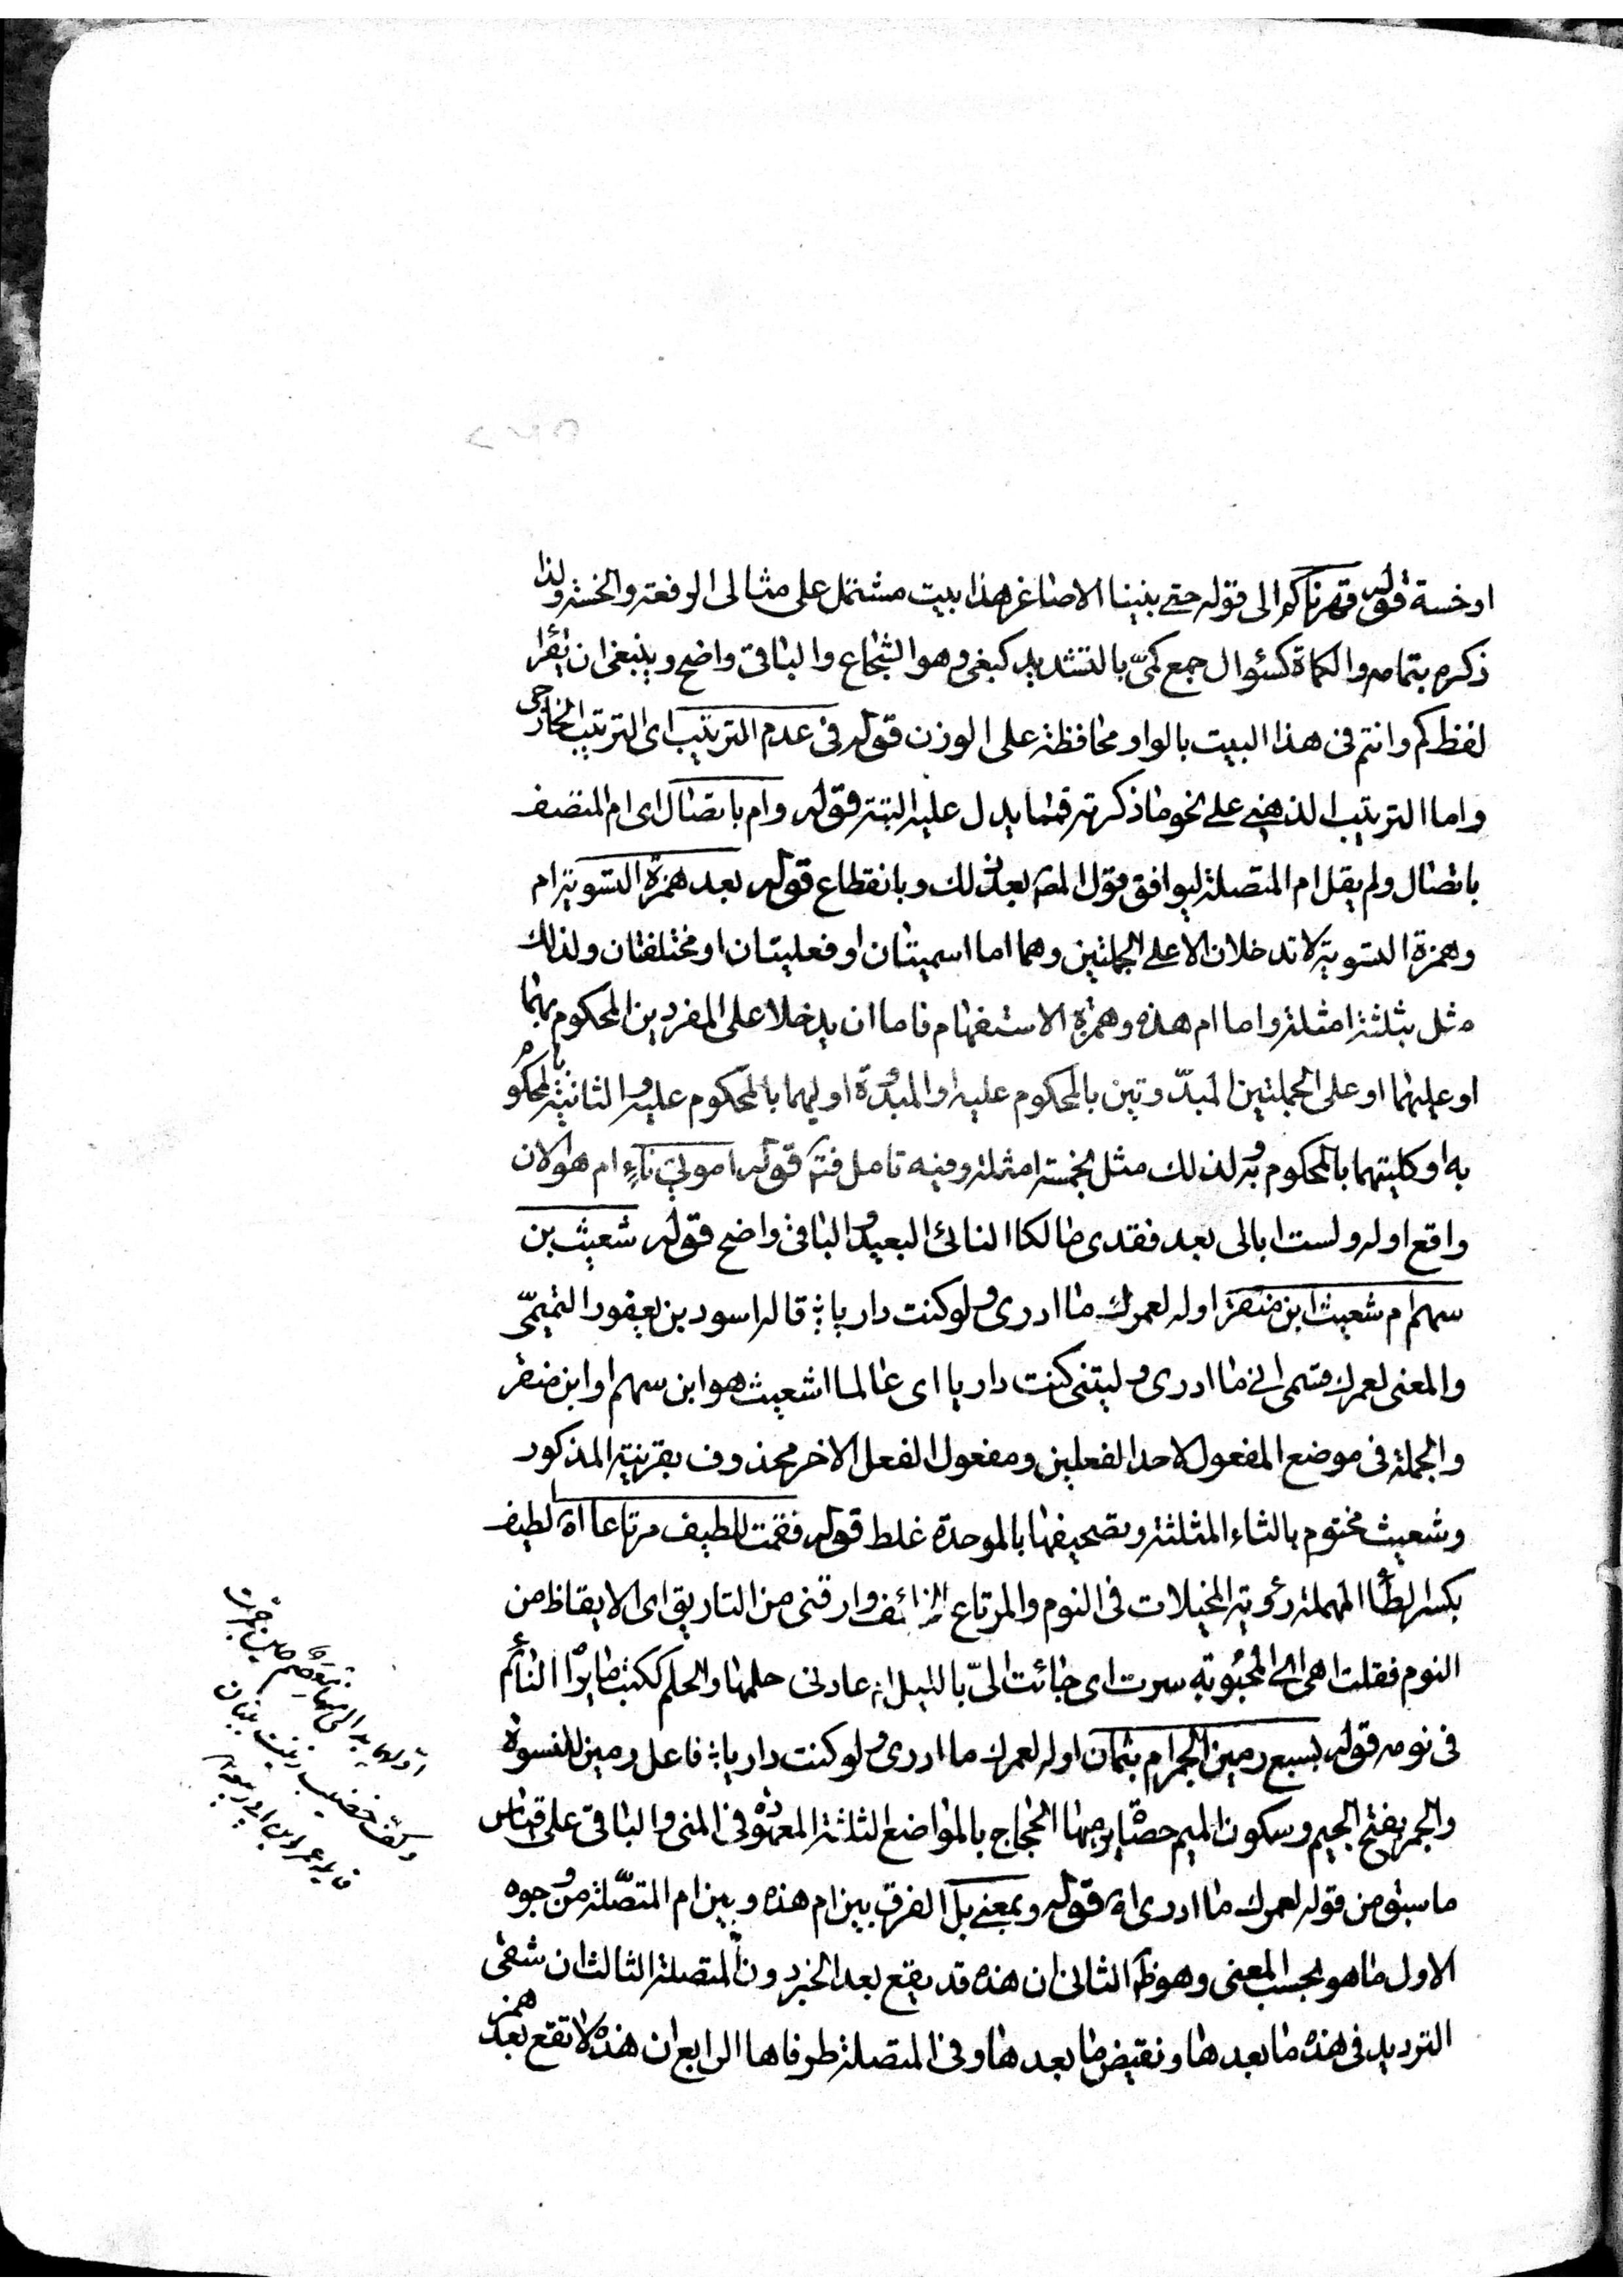 او خسة قوله قهرناكم الى قوله حتى بنينا الاصاغر هذا بيت مشتمل على مثالى الرفعة والخسة ولذا
ذكره بتمامه والكماة كسؤال جمع كمىّ بالتشديد كبغى وهو الشجاع والباقى واضح وينبغى ان يقرا
لفظ كم وانتم فى هذا البيت بالواو محافظة على الوزن قوله فى عدم الترتيب اى الترتيب الخارجى
واما الترتيب الذهنى على نحو ما ذكرته فمما يدل عليه البتة قوله وام باتصال اى ام المتصف
باتصال ولم يقل ام المتصلة ليوافق قول المصـ بعد ذلك وبانقطاع قوله بعد همزة التسوية ام
وهمزة التسوية لا تدخلان الا على الجملتين وهما اما اسميتان او فعليتان او مختلفتان ولذلك
مثل بثلثة امثلة واما ام هذه وهمزة الاستفهام فاما ان يدخلا على المفردين المحكوم بهما
او عليهما او على الجملتين المبدّوتين بالمحكوم عليه او المبدوّة اوليهما بالمحكوم عليه والثانية بالمحكوم
به او كليتهما بالمحكوم به ولذلك مثل بخمسة امثلة وفيه تامل فتم قوله اموتى ناءٍ ام هو الان
واقع اوله ولست ابالى بعد فقدى مالكا النائى البعيد والباقى واضح قوله شعيث بن
سهم ام شعيث ابن منقر اوله لعمرك ما ادرى ولو كنت داريا قاله اسود بن يعفور التميمىّ
والمعنى لعمرك قسمى انى ما ادرى وليتنى كنت داريا اى عالما اشعيث هو ابن سهم او ابن منقر
والجملة فى موضع المفعول لاحد الفعلين ومفعول الفعل الاخر محذوف بقرينة المذكور
وشعيث مختوم بالثاء المثلثة وتصحيفها بالموحدة غلط قوله فقمت للطيف مرتاعا اه الطيف
بكسر الطاء المهملة رؤية المخيلات فى النوم والمرتاع الخائف وارقنى من التاريق اى الايقاظ من
النوم فقلت اهى اى المحبوبة سرت اى جائت الىّ بالليل ام عادنى حلمها والحلم ككتب ما يراه النائم
فى نومه قوله بسبع رمين الجمر ام بثمان اوله لعمرك ما ادرى ولو كنت داريا فاعل رمين للنسوة
والجمر بفتح الجيم وسكون الميم حصاة يرميها الحجاج بالمواضع الثلثة المعهودة فى المنى والباقى على قياس
ما سبق من قوله لعمرك ما ادرى اه قوله وبمعنى بل الفرق بين ام هذه وبين ام المتصّلة من وجوه
الاول ما هو بحسب المعنى وهو ظ الثانى ان هذه قد يقع بعد الخبر دون المتصلة الثالث ان شقى
الترديد فى هذه ما بعدها ونقيض ما بعدها وفى المتصلة طرفاها الرابع ان هذه لا تقع بعد همزة
حين جمرت
وكف خضيب زينت ببنان
قايله عمر ابن ابى ربيعه